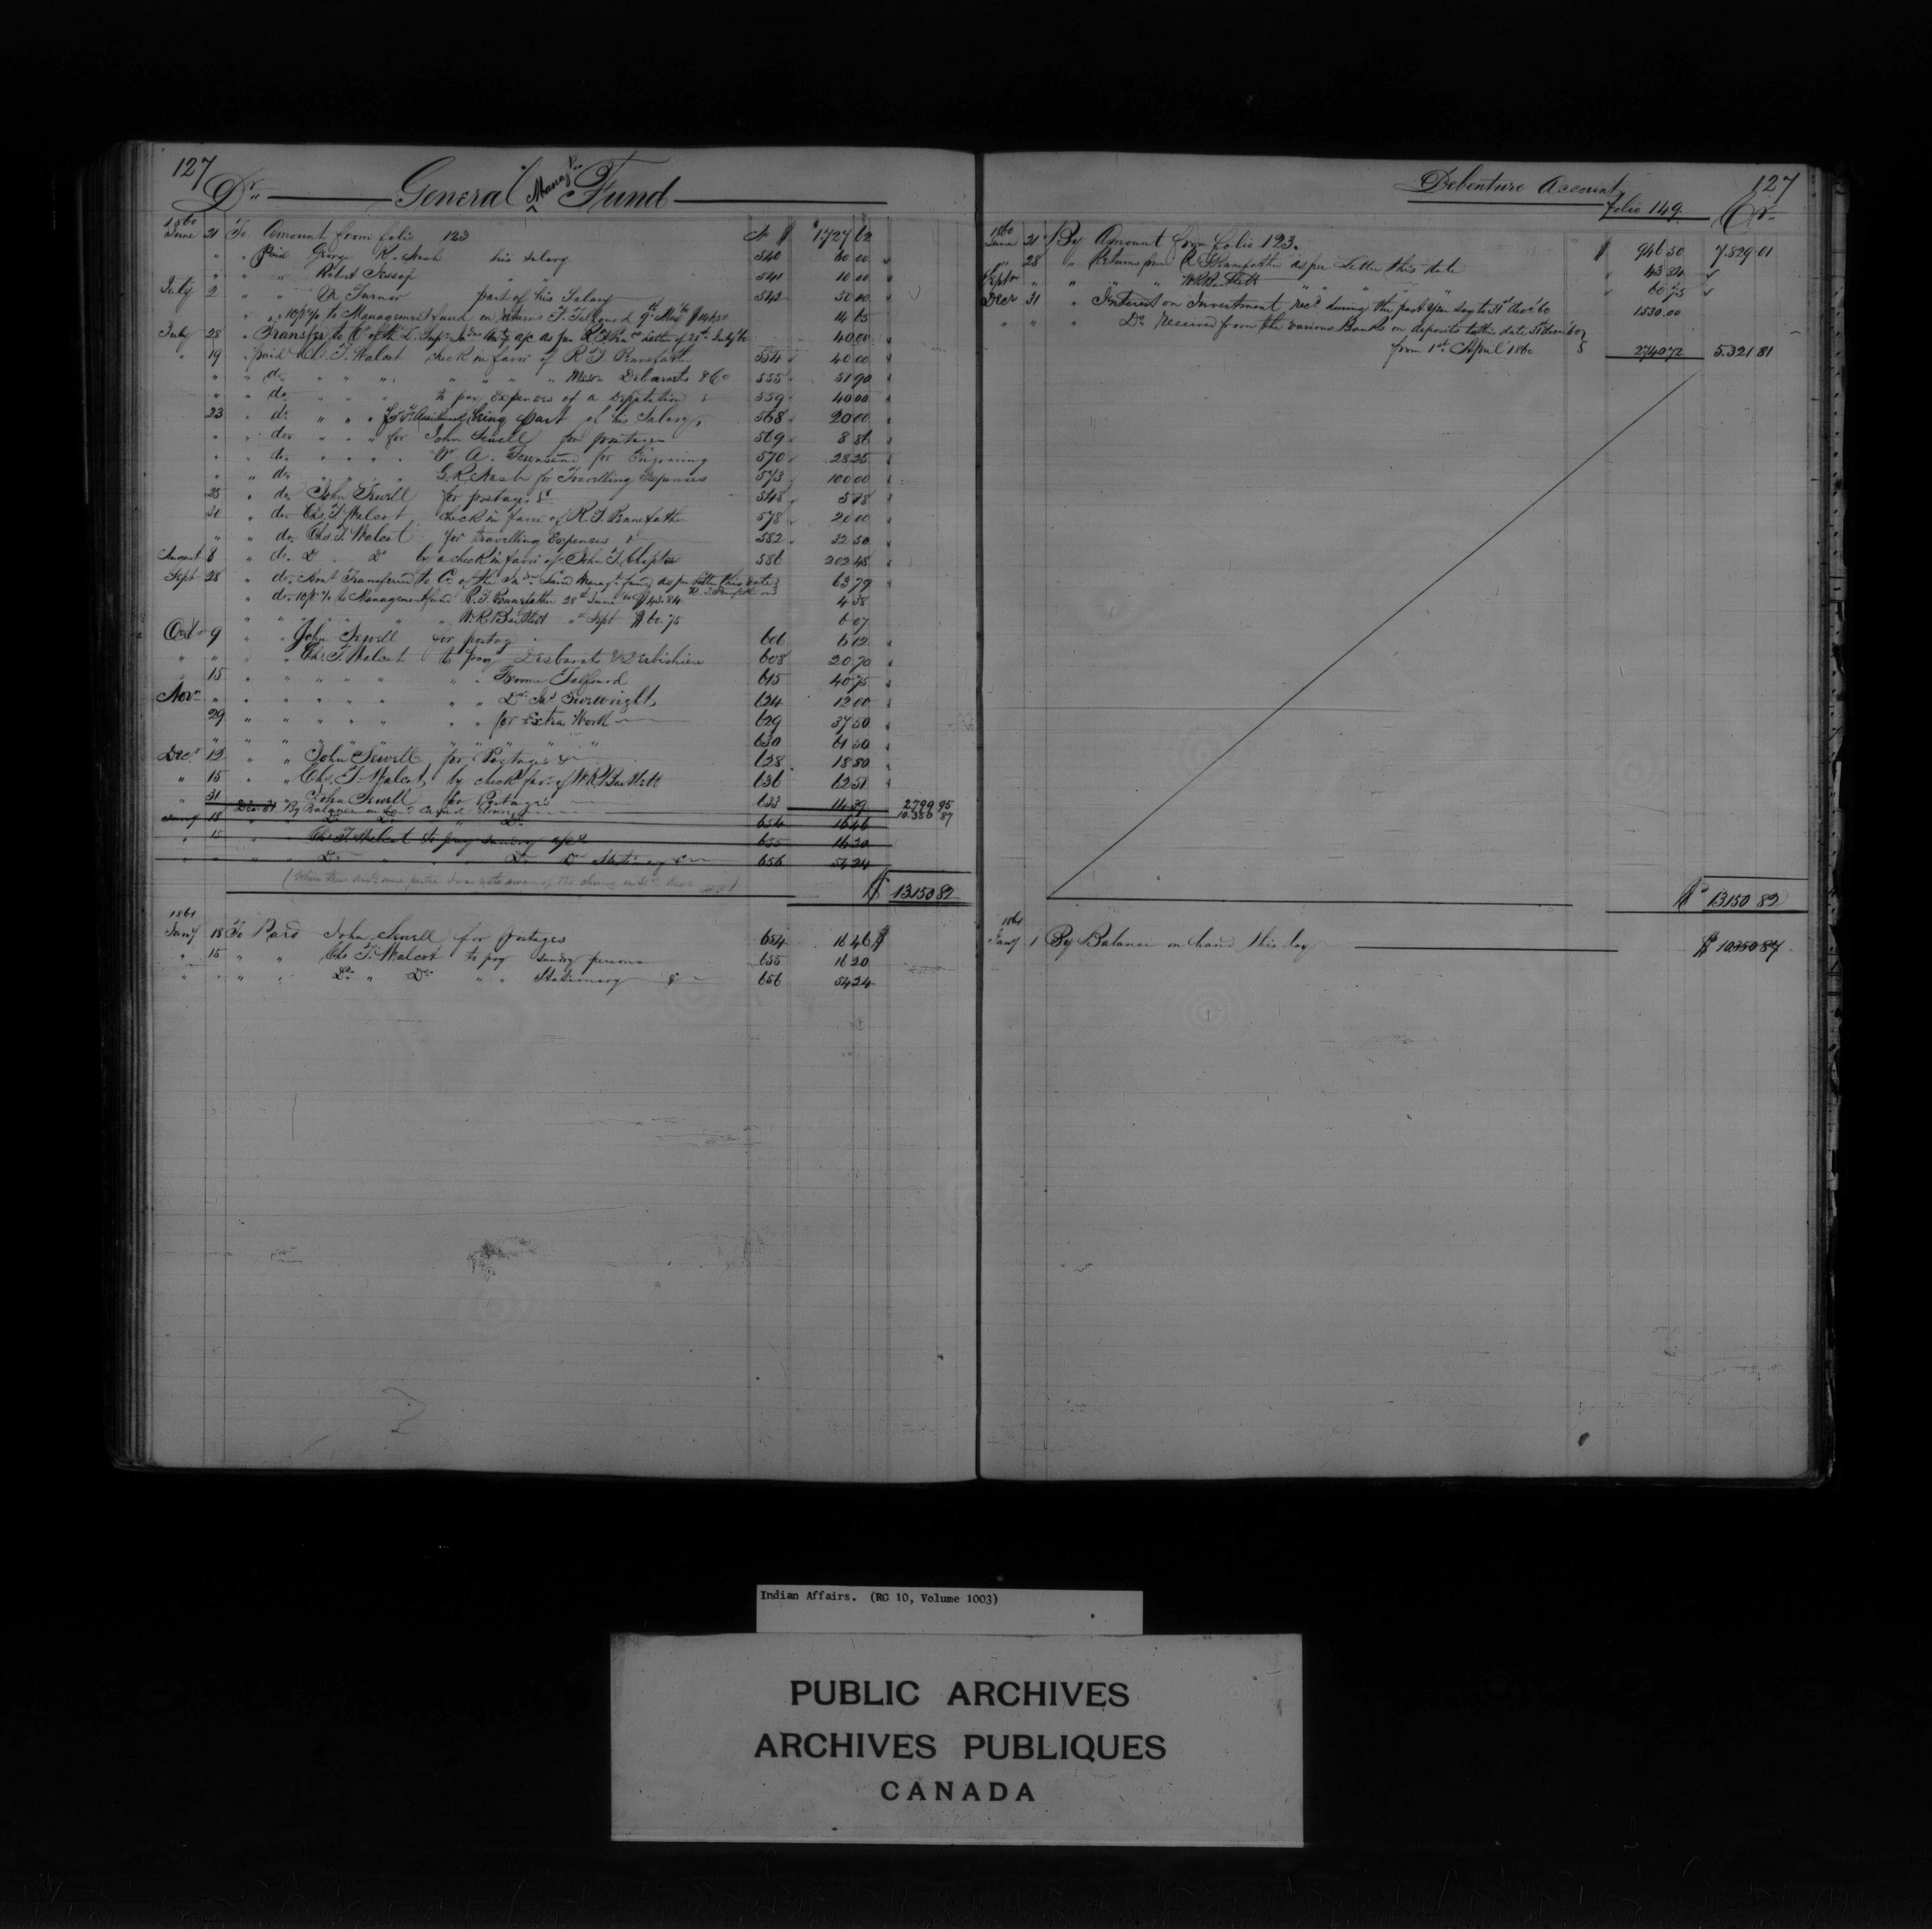 127
Dr. General Manag. Fund
1860
June 21 To Amount from folio 123 No $ 1727 62
" " Paid George R. his Salary 540 60 00
" " " Robert Jessop " " 541 10 00
July 2 " " R Turnor part of his Salary 542 50 00
" " 10 p% to Management fund on returns F. Talfourd 9th May 60 $146.50 14 65
July 28 " Transfer to Cr of the as per Letter of 28th July 60 40 00
" 19 " paid Ch. T. Walcot check in favor of R. T. Pennefather 554 40 00
" " " do " " " " " " " " Messrs &Co 555 51 90
" " " do " " " " to pay Expenses of a Deputation 559 40 00
23 " do " " " being part of his Salary 568 20 00
" " do " " " for John Sewell for postages 569 8 86
" " do " " " " W. A. Townsend for Engraving 570 28 25
" " do " " G. R. Nash for Travelling Expenses 573 100 00
25 " do John Sewell for postages 548 5 78
30 " do Chs. T. Walcot check in favor of R. T. Pennefather 578 20 00
" " do Chs. T. Walcot for travelling Expenses 582 32 50
August 8 " do Do Do by a check in favor of John T. 586 202 48
Sept 28 " do Amt Transferred to Cr of the Land Managt fund as per Letter this date 63 79
" do 10 p% to Management fund R. T. Pennefather 28th June $43.84 4 38
" " " " " W. R. Bartlett " Sept $60.75 6 07
Oct 9 " " John Sewell for postage 606 6 12
" " " " Chs. T. Walcot to pay Desbarats & Derbishire 608 20 70
" 15 " " " " " " " Froome Talfourd 615 40 75
Novr " " " " " " " " Dr 624 12 00
29 " " " " " " " for Extra Work 629 37 50
" " " " " " " " " " 630 61 50
Decr 12 " " John Sewell for Postages & 628 18 80
" 15 " " Chs. T. Walcot by check favr of W R Bartlett 636 62 51
" 31 " John Sewell for Postages 633 14 39 2799 95
Dec 31 By Balance on 10.350 87
Jany 18 " Do Do " Do 654 16 46
" 15 " Chs. T. Walcot to pay sundry 655 16 20
" " " Do " " " Do Do Stationery 656 54 24
$ 13150 82
1861
Jany 18 To Paid John Sewell for Postages 654 16 46
" 15 " " Chs T. Walcot to pay sundry persons 655 16 20
" " " " Do " Do " " Stationary & 656 54 24
Debenture Account 127
folio 149. Cr.
1860
June 21 By Amount from folio 123. $ 946 50 7.829 01
" 28 " Returns from R T Pennefather as per Letter this date " 43 84
Septr " " " " W.R. Bartlett " " " " " 60.75
Decr 31 " Interest on Investment recd during the past year say to 31st Decr 60 1530.00
" " " " Do Received from the various Banks on deposits to this date 31 Decr 60
from 1st April 1860 2740 72 5.321 81
$ 13150 82
1861
Jany 1 By Balance on hand this day $ 10350 87
Indian Affairs. (RG 10, Volume 1003)
PUBLIC ARCHIVES
ARCHIVES PUBLIQUES
CANADA